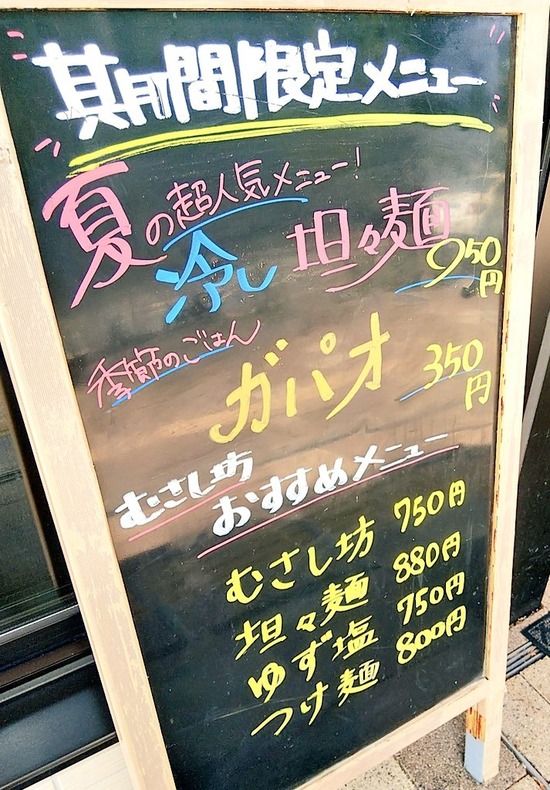 期間限定メニュー
夏の超人気メニュー!
冷し坦々麺
950円
季節のごはん
ガパオ 350円
むさし坊
おすすめメニュー
むさし坊 750円
坦々麺 880円
ゆず塩 750円
つけ麺 800円